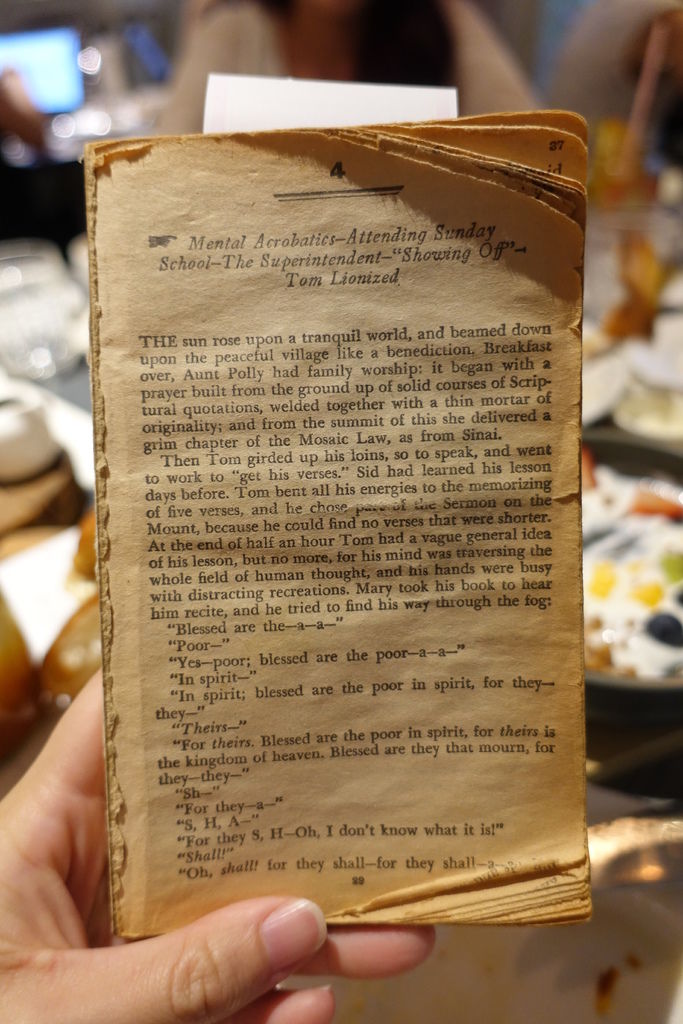 37
id
4
☞ Mental Acrobatics—Attending Sunday
School—The Superintendent—"Showing Off"—
Tom Lionized
THE sun rose upon a tranquil world, and beamed down
upon the peaceful village like a benediction. Breakfast
over, Aunt Polly had family worship: it began with a
prayer built from the ground up of solid courses of Scrip-
tural quotations, welded together with a thin mortar of
originality; and from the summit of this she delivered a
grim chapter of the Mosaic Law, as from Sinai.
Then Tom girded up his loins, so to speak, and went
to work to "get his verses." Sid had learned his lesson
days before. Tom bent all his energies to the memorizing
of five verses, and he chose part of the Sermon on the
Mount, because he could find no verses that were shorter.
At the end of half an hour Tom had a vague general idea
of his lesson, but no more, for his mind was traversing the
whole field of human thought, and his hands were busy
with distracting recreations. Mary took his book to hear
him recite, and he tried to find his way through the fog:
"Blessed are the—a—a—"
"Poor—"
"Yes—poor; blessed are the poor—a—a—"
"In spirit—"
"In spirit; blessed are the poor in spirit, for they—
they—"
"Theirs—"
"For theirs. Blessed are the poor in spirit, for theirs is
the kingdom of heaven. Blessed are they that mourn, for
they—they—"
"Sh—"
"For they—a—"
"S, H, A—"
"For they S, H—Oh, I don't know what it is!"
"Shall!"
"Oh, shall! for they shall—for they shall—a—
29